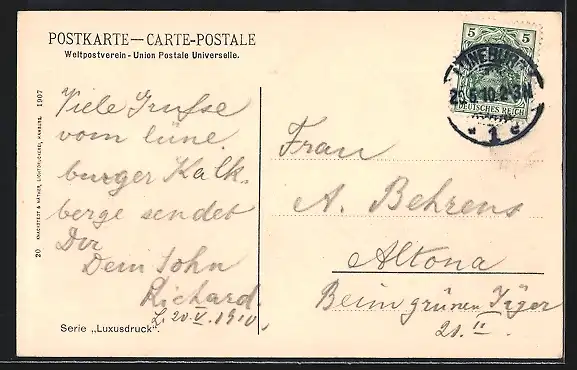 POSTKARTE — CARTE-POSTALE
Weltpostverein - Union Postale Universelle.
Viele Grüsse
vom lüne
burger Kalk-
berge sendet
Dir
Dein Sohn
Richard.
L. 20. V. 1910.
Serie „Luxusdruck".
20 KNACKSTEDT & NÄTHER, LICHTDRUCKEREI, HAMBURG. 1907
5 5
DEUTSCHES REICH
LÜNEBURG
10.2-3N
* 1 d
Frau
A. Behrens
Altona
Beim grünen Jäger
21. II